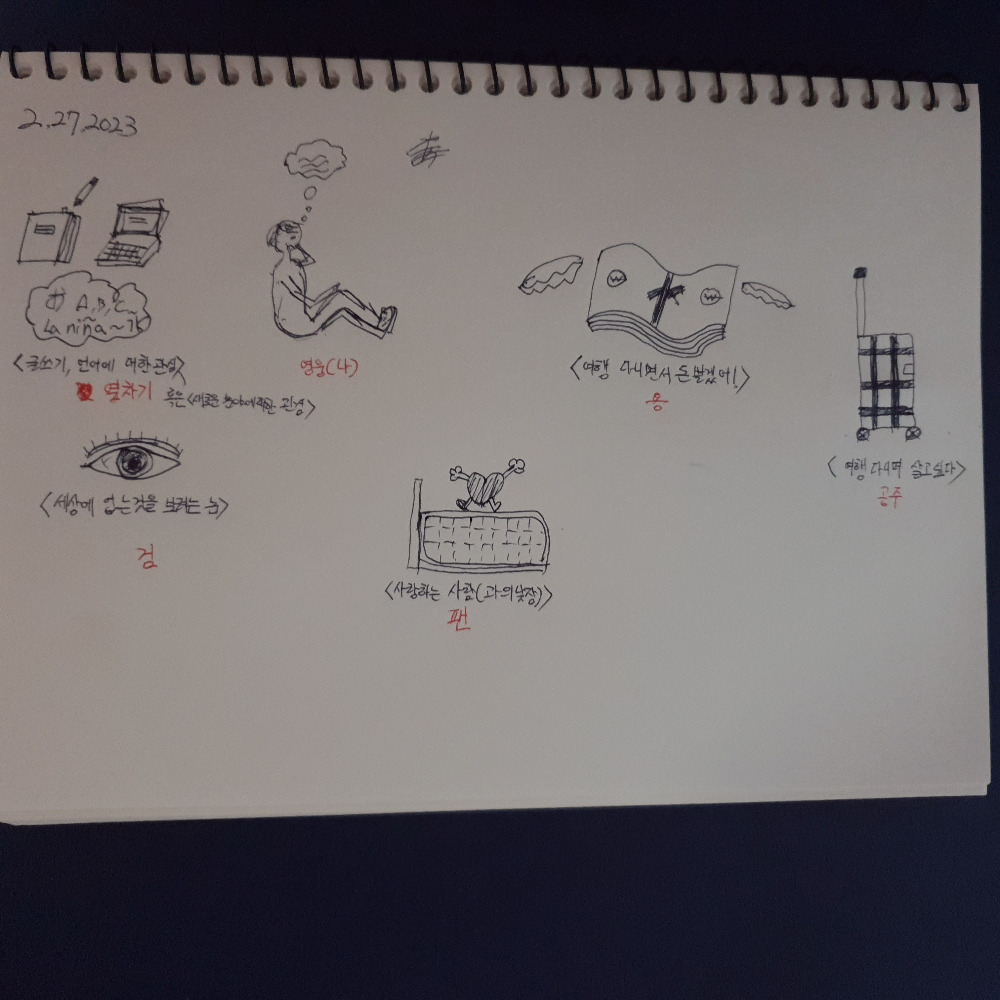 2.27.2023
あ A, B, C~
La niña~ 가
<글쓰기, 언어에 대한 관심>
열차기 혹은 <새로운 분야에 대한 관심>
영웅(나)
W W
<여행 다니면서 돈 벌겠어!>
용
<여행 다니며 살고싶다>
공주
<세상에 없는것을 보려는 눈>
검
<사랑하는 사람(과의 낮잠)>
팬